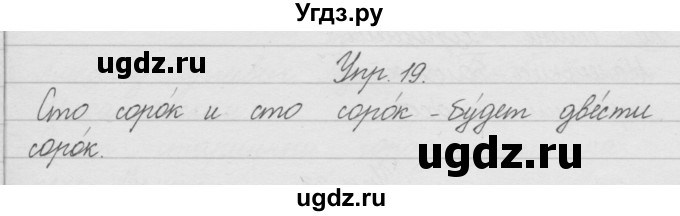 Угдз.ру
ugdz.ru
Упр. 19.
Сто соро́к и сто соро́к - бу́дет две́сти
соро́к.
ugdz.ru
ugdz.ru
ugdz.ru